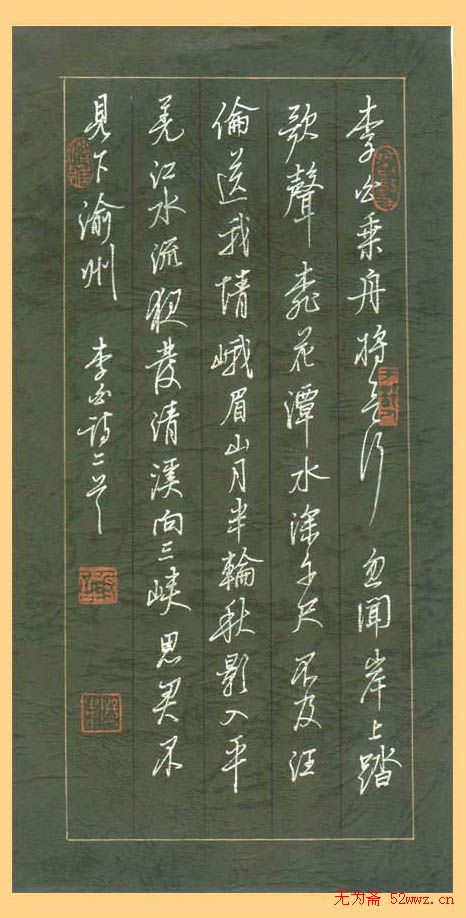 李白乘舟將欲行 忽聞岸上踏
歌聲 桃花潭水深千尺 不及汪
倫送我情峨眉山月半輪秋影入平
羌江水流夜發清溪向三峽思君不
見下渝州 李白詩二首
无为斋 52wwz.cn